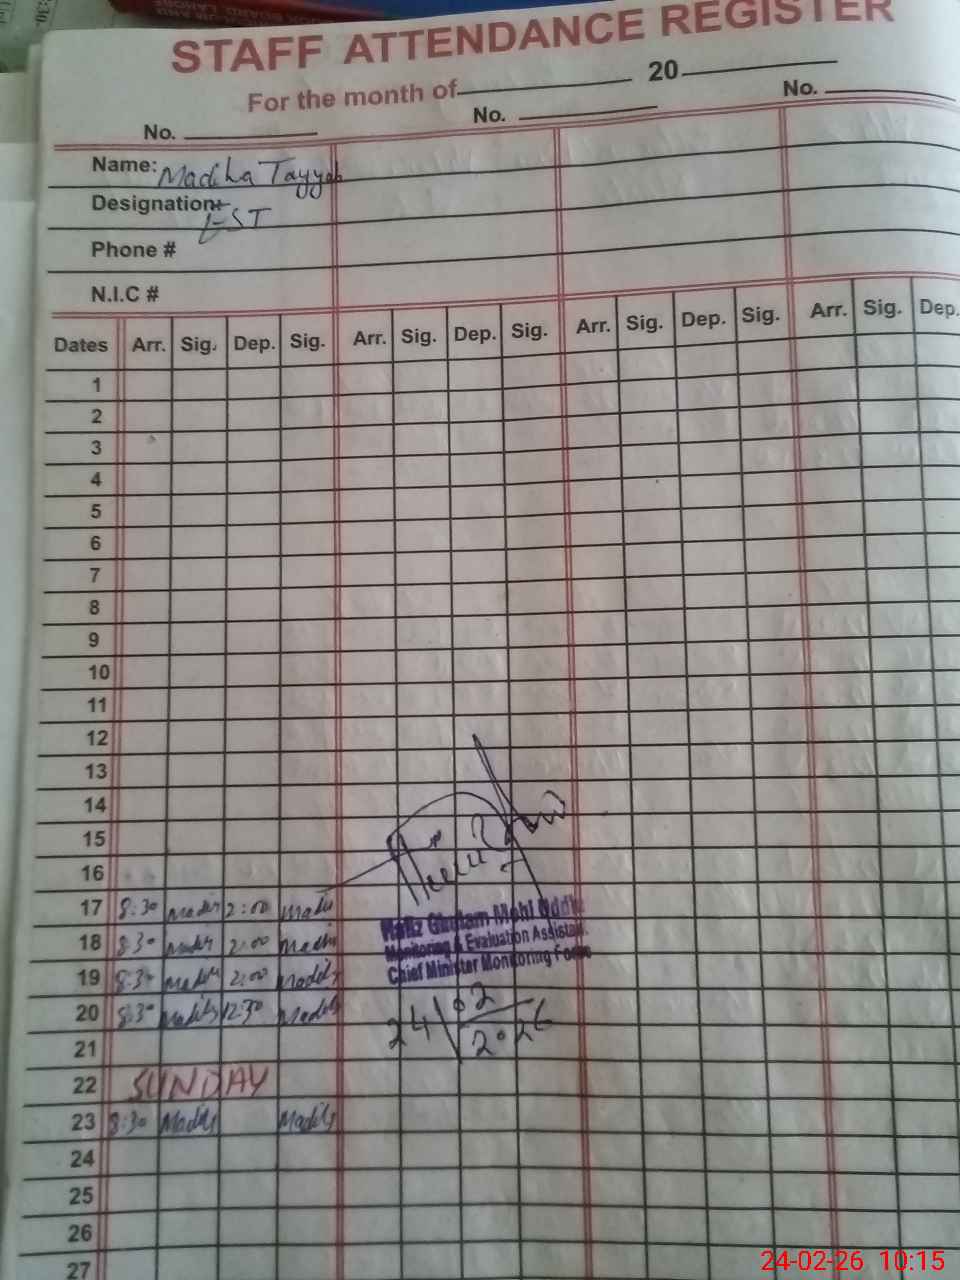 STAFF ATTENDANCE REGISTER
For the month of 20
No. No. No.
Name: Madiha Tayyab
Designation: EST
Phone #
N.I.C #
Dates Arr. Sig. Dep. Sig. Arr. Sig. Dep. Sig. Arr. Sig. Dep. Sig. Arr. Sig. Dep.
1
2
3
4
5
6
7
8
9
10
11
12
13
14
15
16
17 8:30 2:00
18 8:30 2:00
19 8:30 2:00
20 8:30 12:30
21
22 SUNDAY
23 8:30
24
25
26
27
Hafiz Ghulam Mohi Uddin
Monitoring & Evaluation Assistant
Chief Minister Monitoring Force
24/02/2026
24-02-26 10:15